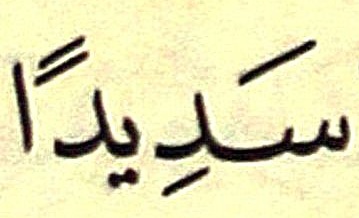 سَدِيدًا